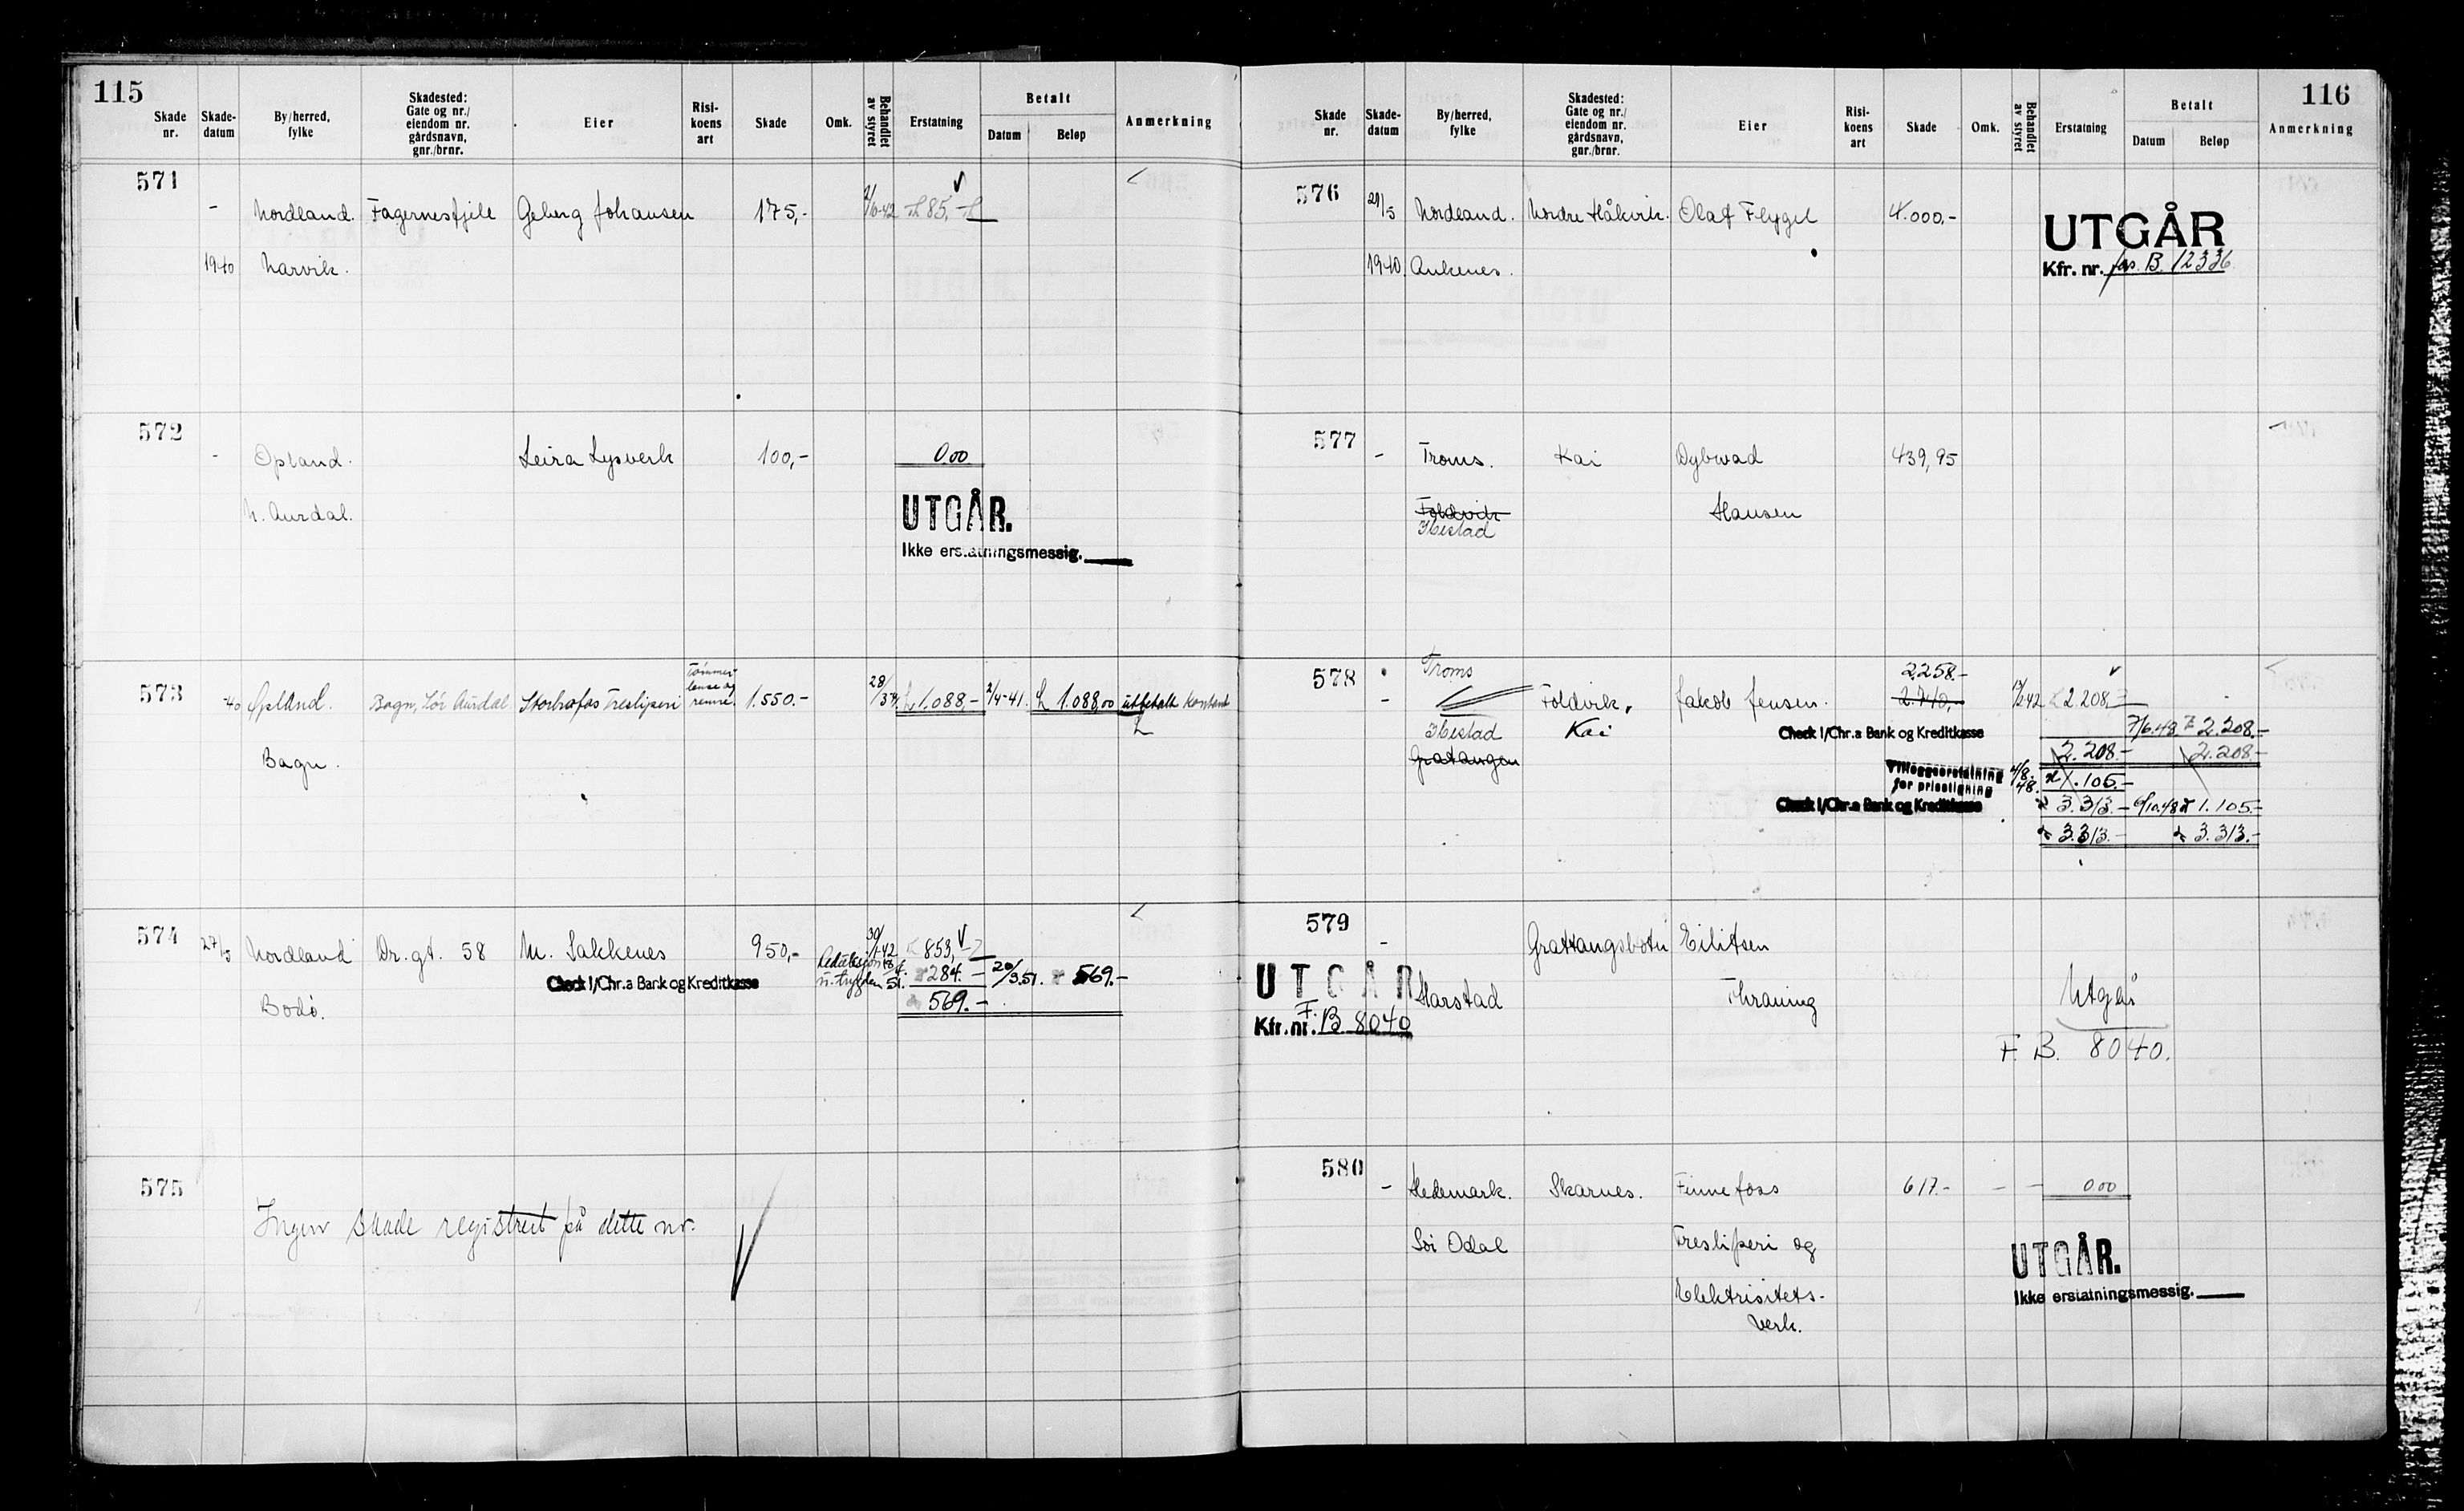 115
Skade nr.
Skade-datum
By/herred, fylke
Skadested: Gate og nr./ eiendom nr. gårdsnavn, gnr./brnr.
Eier
Risi-koens art
Skade
Omk.
Behandlet av styret
Erstatning
Betalt
Datum
Beløp
Anmerkning
571
- Nordland. Fagernesfjell Geberg Johansen 175,- 85,-
1940 Narvik.
572
- Opland. Leira Lysverk 100,- 0.00
N. Aurdal.
UTGÅR.
Ikke erstatningsmessig.
573
-40 Opland. Bagn, Sør Aurdal. Storbrofos Tresliperi Tømmer-lense og renne. 1.550.- 1.088,- 2/4-41. 1.088,00 utbetalt kontant
Bagn.
574
27/5 Nordland Dr. gt. 58 M. Sakkenes 950,- 30/1-42 853,-
Check I/Chr.a Bank og Kreditkasse 284.- 20/3.51. 569.-
Bodø. 569.-
575
Ingen skade registrert på dette nr.
116
Skade nr.
Skade-datum
By/herred, fylke
Skadested: Gate og nr./ eiendom nr. gårdsnavn, gnr./brnr.
Eier
Risi-koens art
Skade
Omk.
Behandlet av styret
Erstatning
Betalt
Datum
Beløp
Anmerkning
576
29/5 Nordland. Nordre Håkvik. Olaf Flygel 4.000,-
1940 Ankenes.
UTGÅR
Kfr. nr. B. 12336
577
- Troms. Kai Dybwad 439,95
Foldvik Hansen
Ibestad
578
Troms 2.258.-
- Foldvik, Jakob Jensen. 2.740,- 2.208
Ibestad Kai Check I/Chr.a Bank og Kreditkasse 7/6.48. 2.208.-
Gratangen 2.208.- 2.208.-
Tilleggserstatning 4/8.48. 1.105.-
for prisstigning
Check I/Chr.a Bank og Kreditkasse 3.313.- 6/10.48 1.105.-
3.313.- 3.313.-
579
- Grattangsbotn Eilitsen
UTGÅR Harstad Thraning Utgår
Kfr. nr. F. B 8040
F. B. 8040.
580
- Hedemark. Skarnes. Finnefoss 617.- - - 0.00
Sør Odal Tresliperi og
Elektrisitets-
verk.
UTGÅR.
Ikke erstatningsmessig.